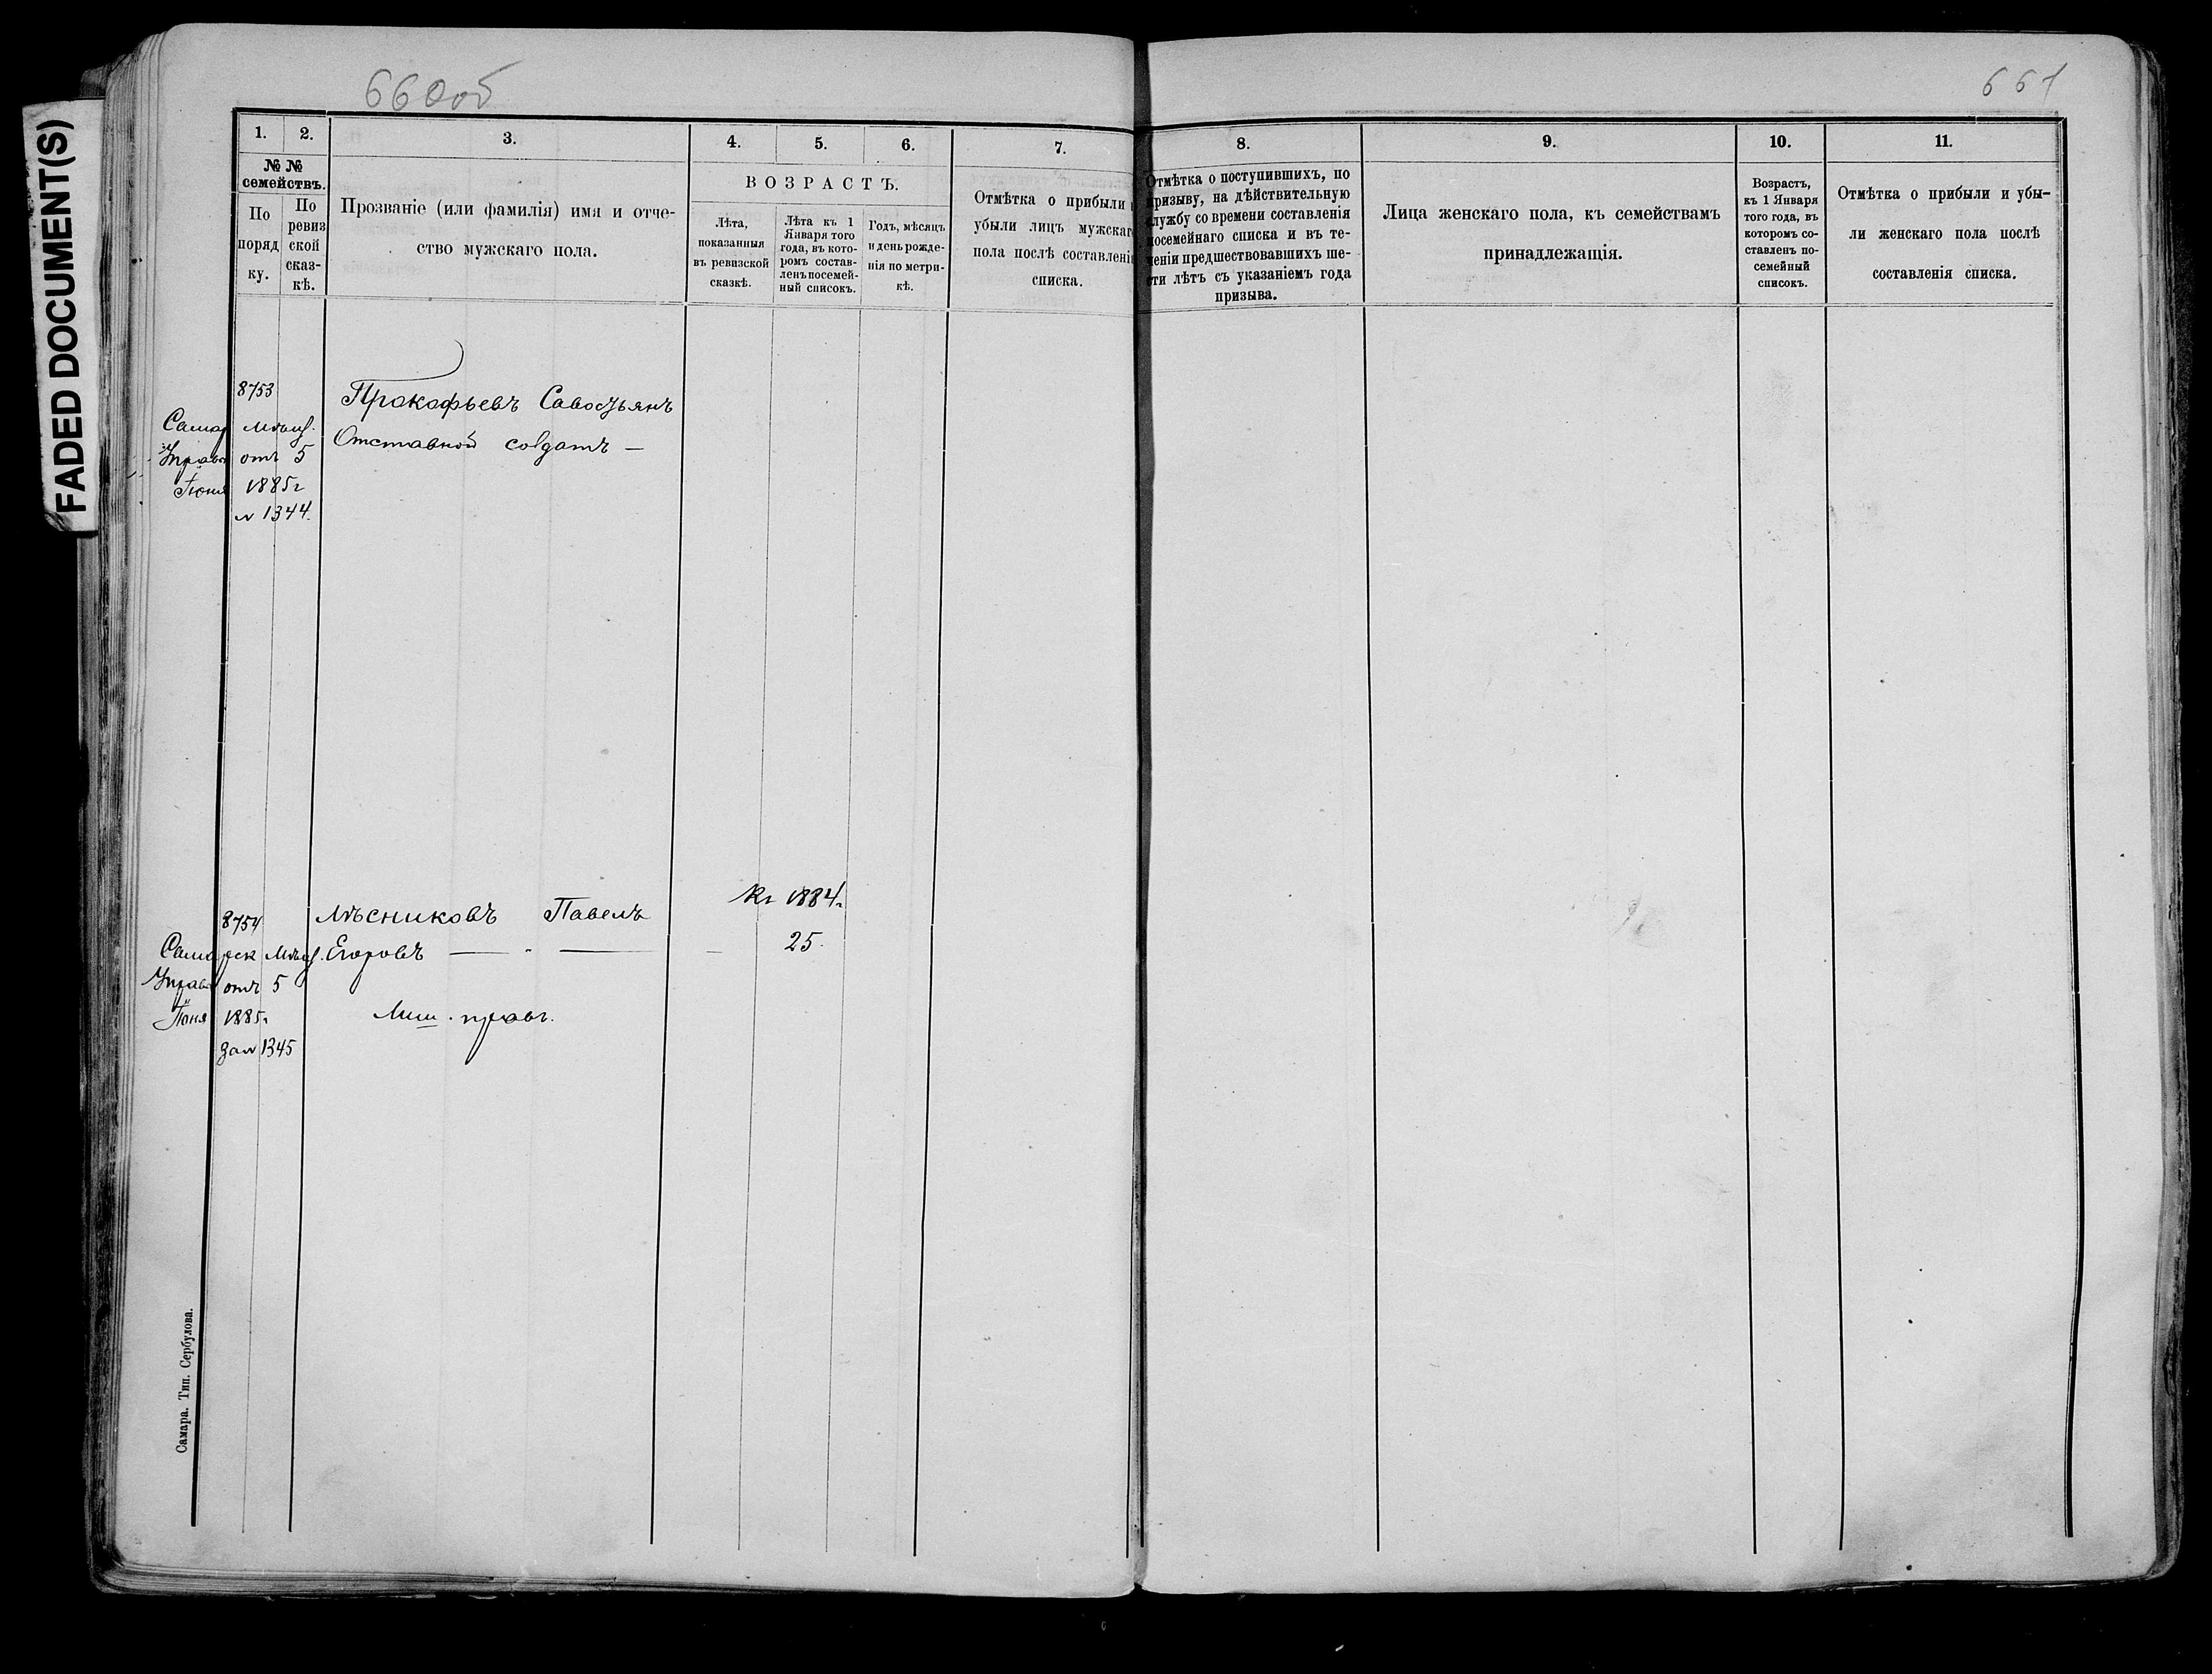 FADED DOCUMENT(S)
660об
661
1.
2.
3.
4.
5.
6.
7.
8.
9.
10.
11.
№ №
семействъ.
По
поряд
ку.
По
ревиз
ской
сказ-
кѣ.
Прозваніе (или фамилія) имя и отче-
ство мужскаго пола.
ВОЗРАСТЪ.
Лѣта,
показанныя
въ ревизской
сказкѣ.
Лѣта къ 1
Января того
года, въ кото-
ромъ состав-
ленъ посемей-
ный списокъ.
Годъ, мѣсяцъ
и день рожде-
нія по метри-
кѣ.
Отмѣтка о прибыли
убыли лицъ мужскаг
пола послѣ составлені
списка.
Отмѣтка о поступившихъ, по
призыву, на дѣйствительную
службу со времени составленія
посемейнаго списка и въ те-
ченіи предшествовавшихъ ше-
сти лѣтъ съ указаніемъ года
призыва.
Лица женскаго пола, къ семействамъ
принадлежащія.
Возрастъ,
къ 1 Января
того года, въ
которомъ со-
ставленъ по-
семейный
списокъ.
Отмѣтка о прибыли и убы-
ли женскаго пола послѣ
составленія списка.
8753
Самар Мѣщ.
Управы отъ 5
Іюня 1885г
№ 1344.
Прокофьевъ Савостьянъ
Отставной солдатъ —
8754
Самарск Мѣщ.
Управы отъ 5
Іюня 1885г
за № 1345
Мѣсниковъ Павелъ
Егоровъ — " — —
Лиш. правъ.
Къ 1884г.
25.
Самара. Тип. Сербулова.